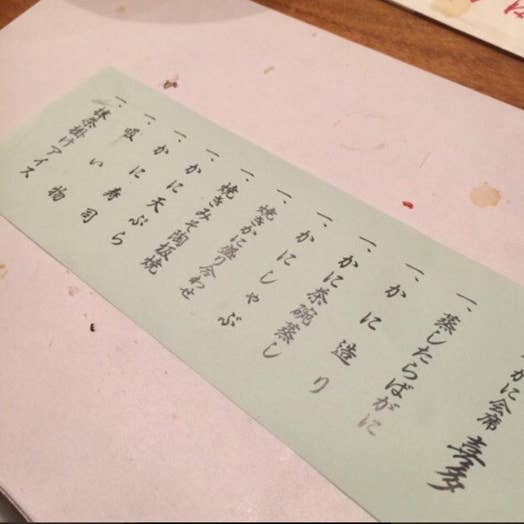 かに会席 喜多
一、蒸したらばがに
一、かに造り
一、かに茶碗蒸し
一、かにしゃぶ
一、焼きかに盛り合わせ
一、焼きみそ陶板焼
一、かに天ぷら
一、かに寿司
一、吸い物
一、抹茶掛けアイス